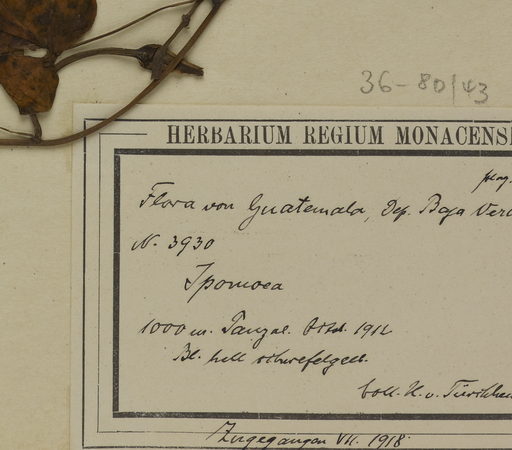 36-80/43
HERBARIUM REGIUM MONACENSE
Flora von Guatemala, Dep. Baja Vera
N. 3930
Ipomoea
1000 m. Panzal. 1912
Bl. hell schwefelgelb.
Coll. H. v. Türckheim
Zugegangen VII. 1918